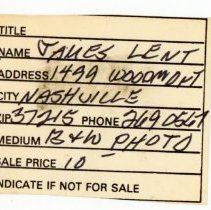 TITLE
NAME JAMES LENT
ADDRESS 1499 WOODMONT
CITY NASHVILLE
ZIP 37215 PHONE 269 0561
MEDIUM B&W PHOTO
SALE PRICE 10
INDICATE IF NOT FOR SALE